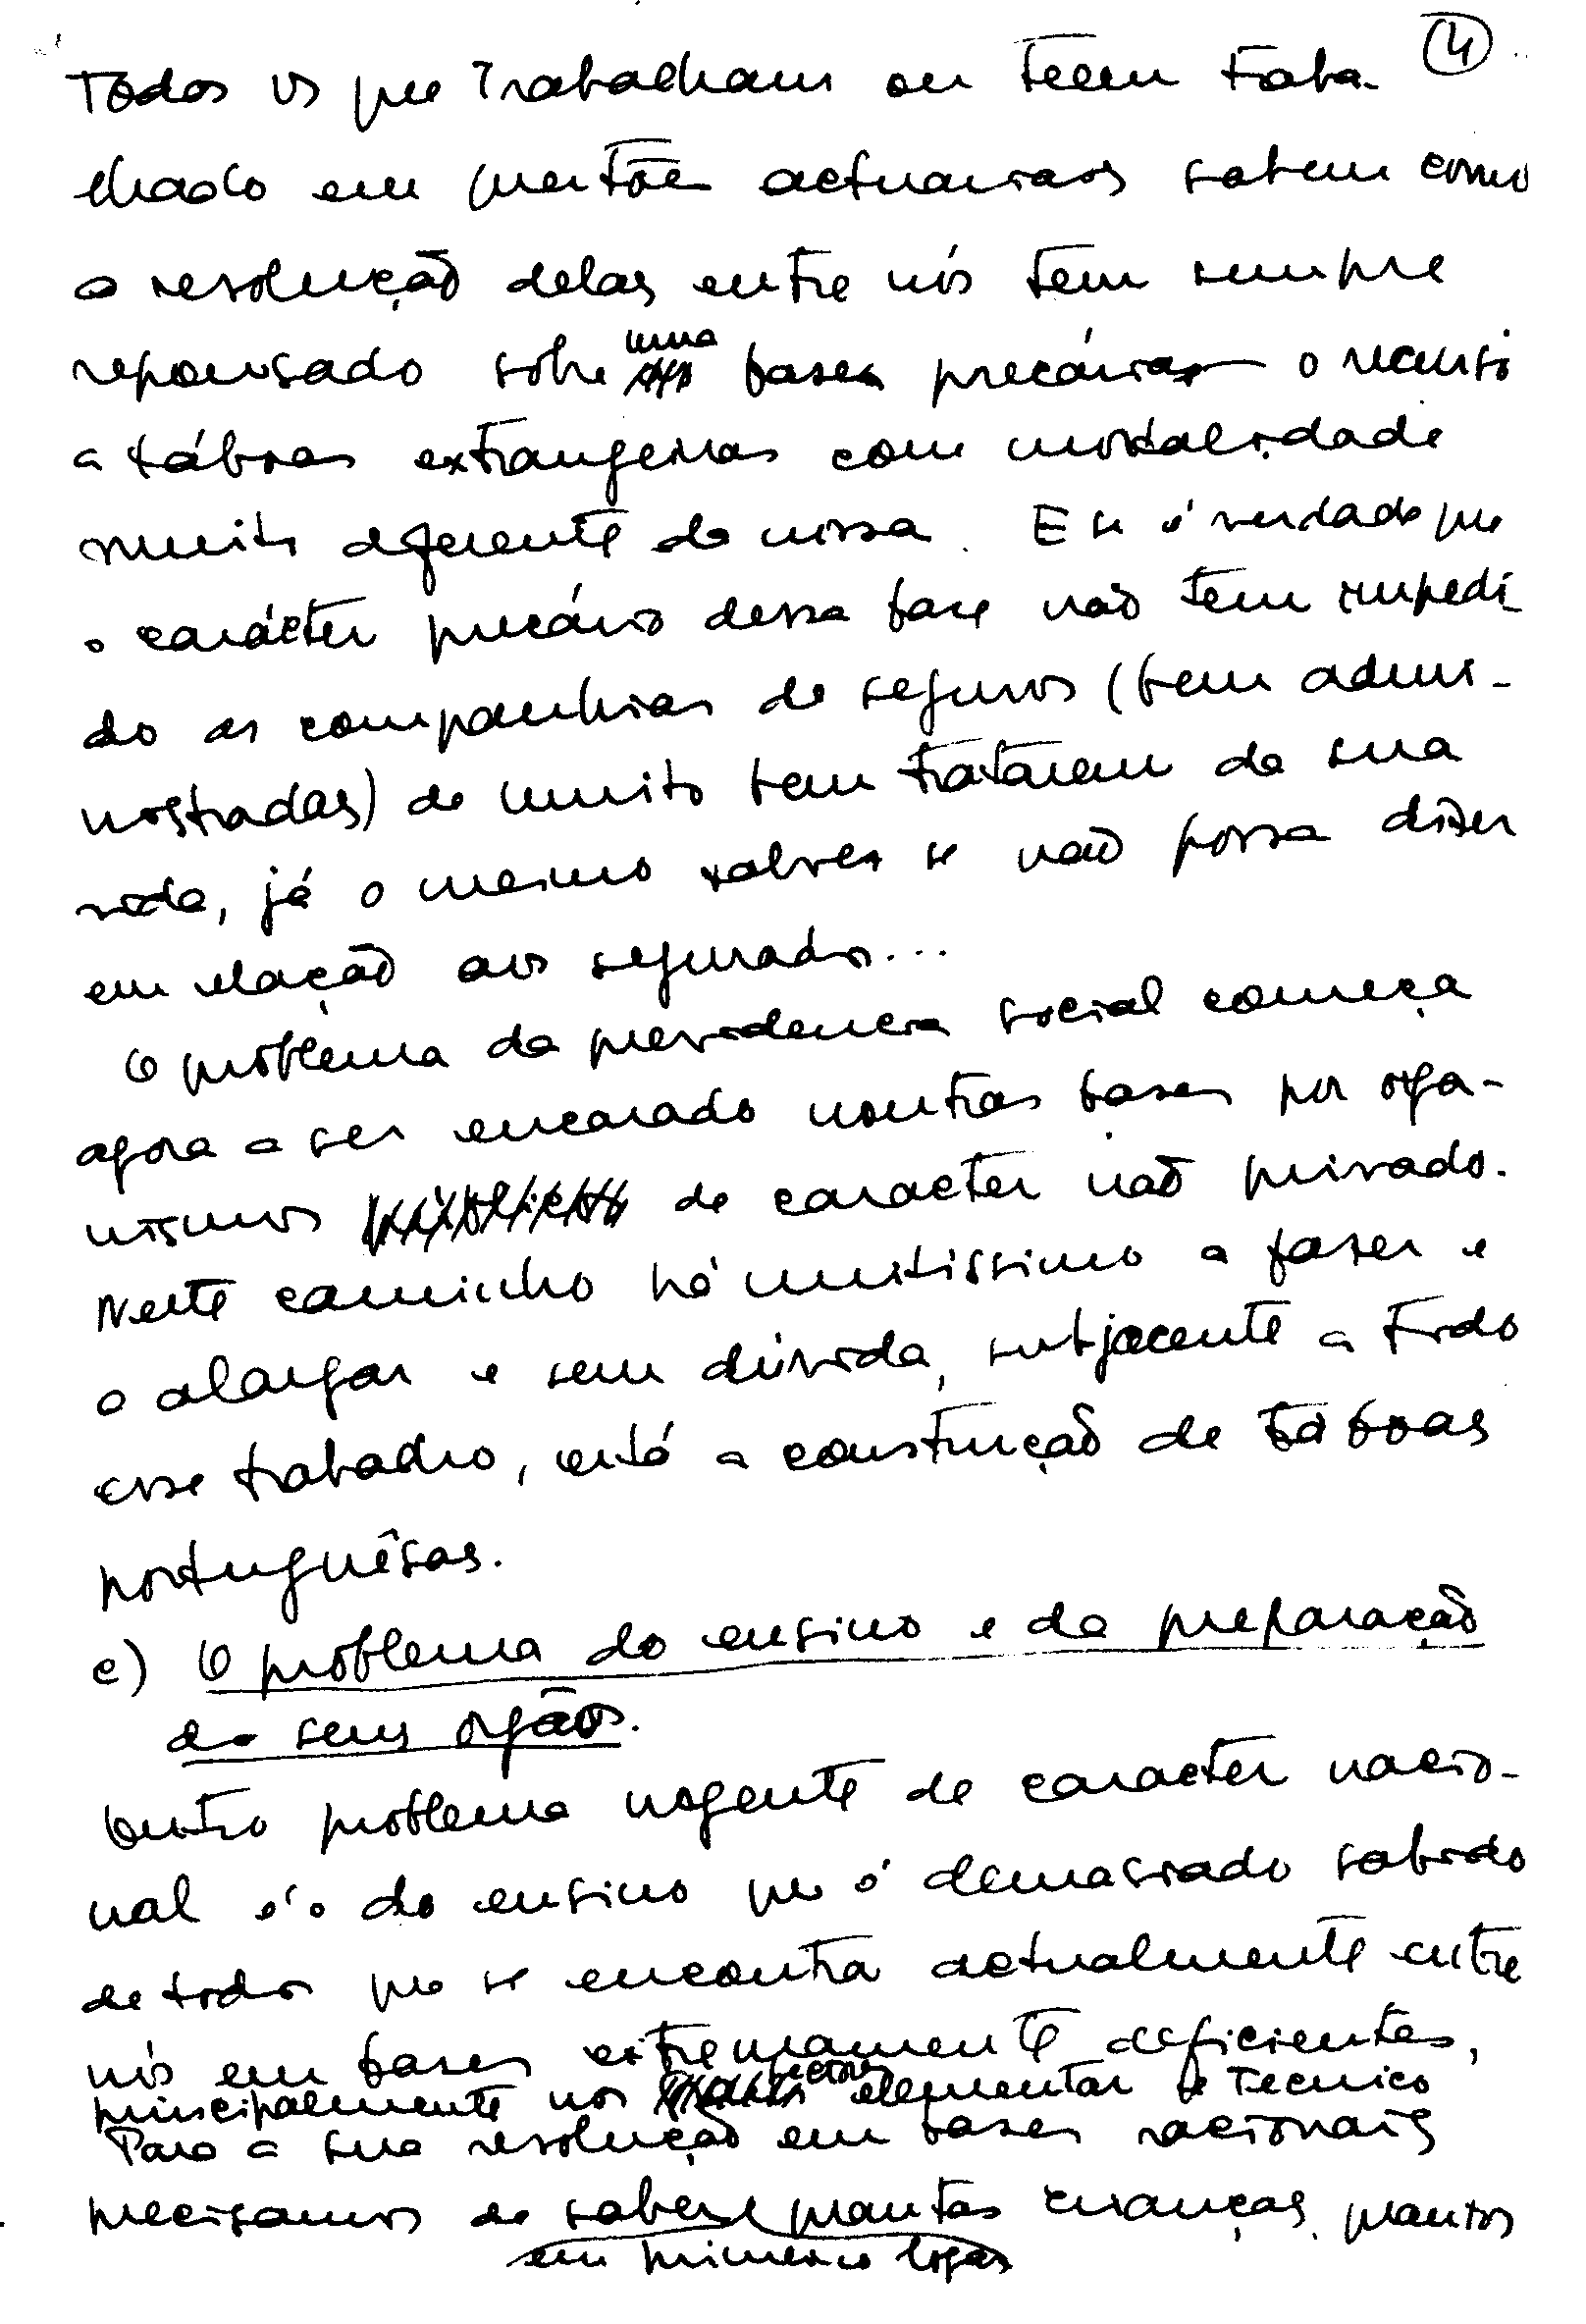 4
Todos os que trabalham ou teem traba-
lhado em questões actuariais sabem como
a resolução delas entre nós tem sempre
repousado sôbre uma base precária o recurso
a tábuas extrangeiras com mortalidade
muito diferente da nossa. E se é verdade que
o carácter precário dessa base não tem impedi-
do as companhias de seguros (bem admi-
nistradas) de muito bem tratarem da sua
vida, já o mesmo talvez se não possa dizer
em relação aos segurados...
O problema da previdencia social começa
agora a ser encarado noutras bases por orga-
nismos públicos de caracter não privado.
Neste caminho há muitissimo a fazer e
a alargar e sem dúvida, subjacente a todo
esse trabalho, está a construção de táboas
portuguêsas.
c) O problema do ensino e da preparação
de seus orgãos.
Outro problema urgente de caracter nacio-
nal é o do ensino que é demasiado sabido
de todos que se encontra actualmente entre
nós em bases extremamente deficientes,
principalmente nos sectores elementar e tecnico
Para a sua resolução em bases racionais
precisamos de saber quantas crianças, quantos
em primeiro logar